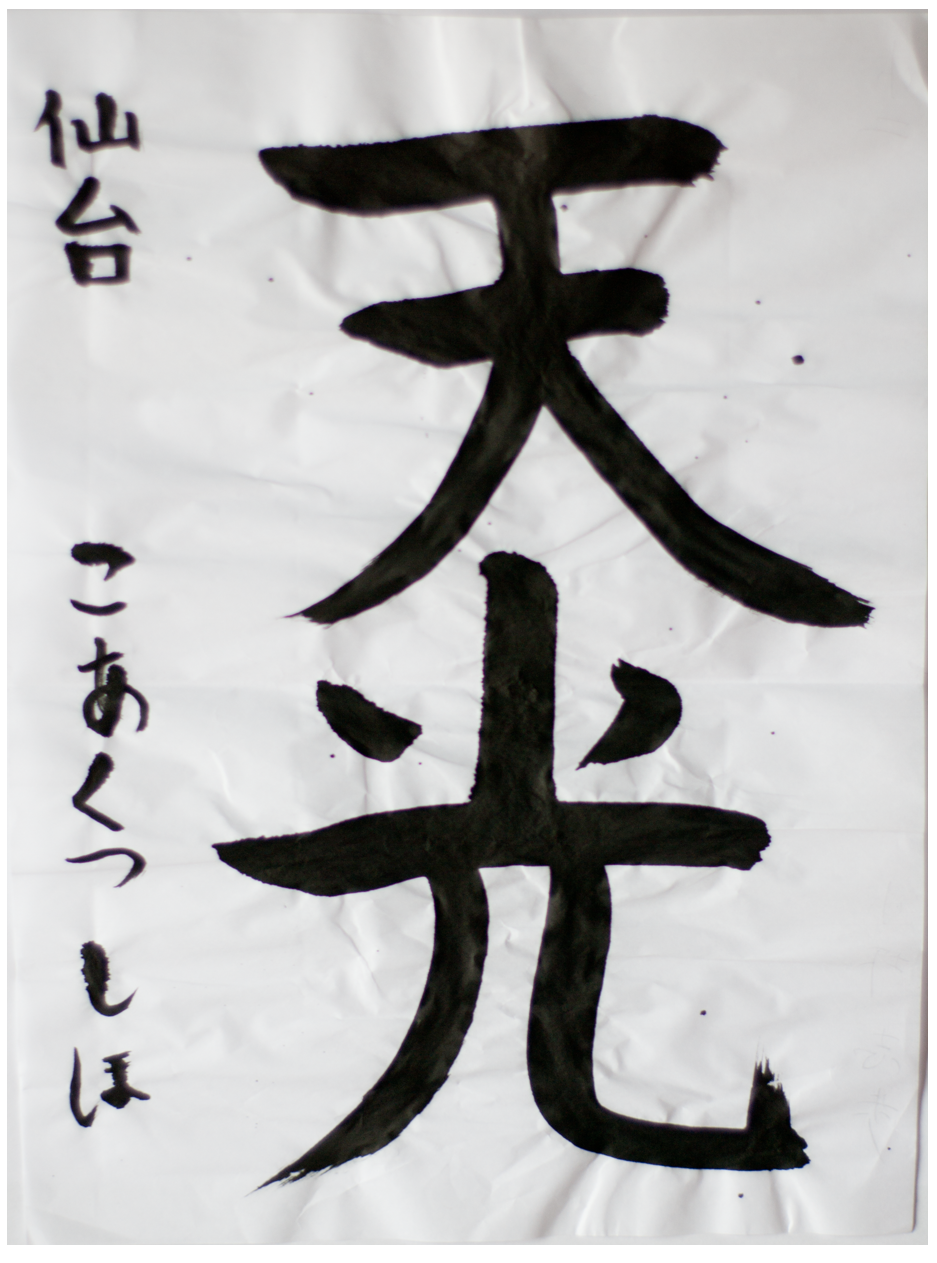 天光
仙台 こあくつ しほ